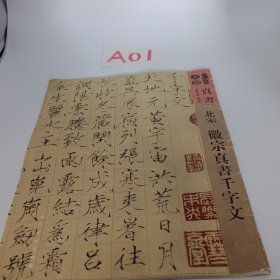 A01
真書
北宋
徽宗真書千字文
千字文
天地元黃宇宙洪荒日月
盈昃辰宿列張寒來暑往
秋收冬藏閏餘成歲律呂
調陽雲騰致雨露結為霜
金生麗水玉出崑崗劍號